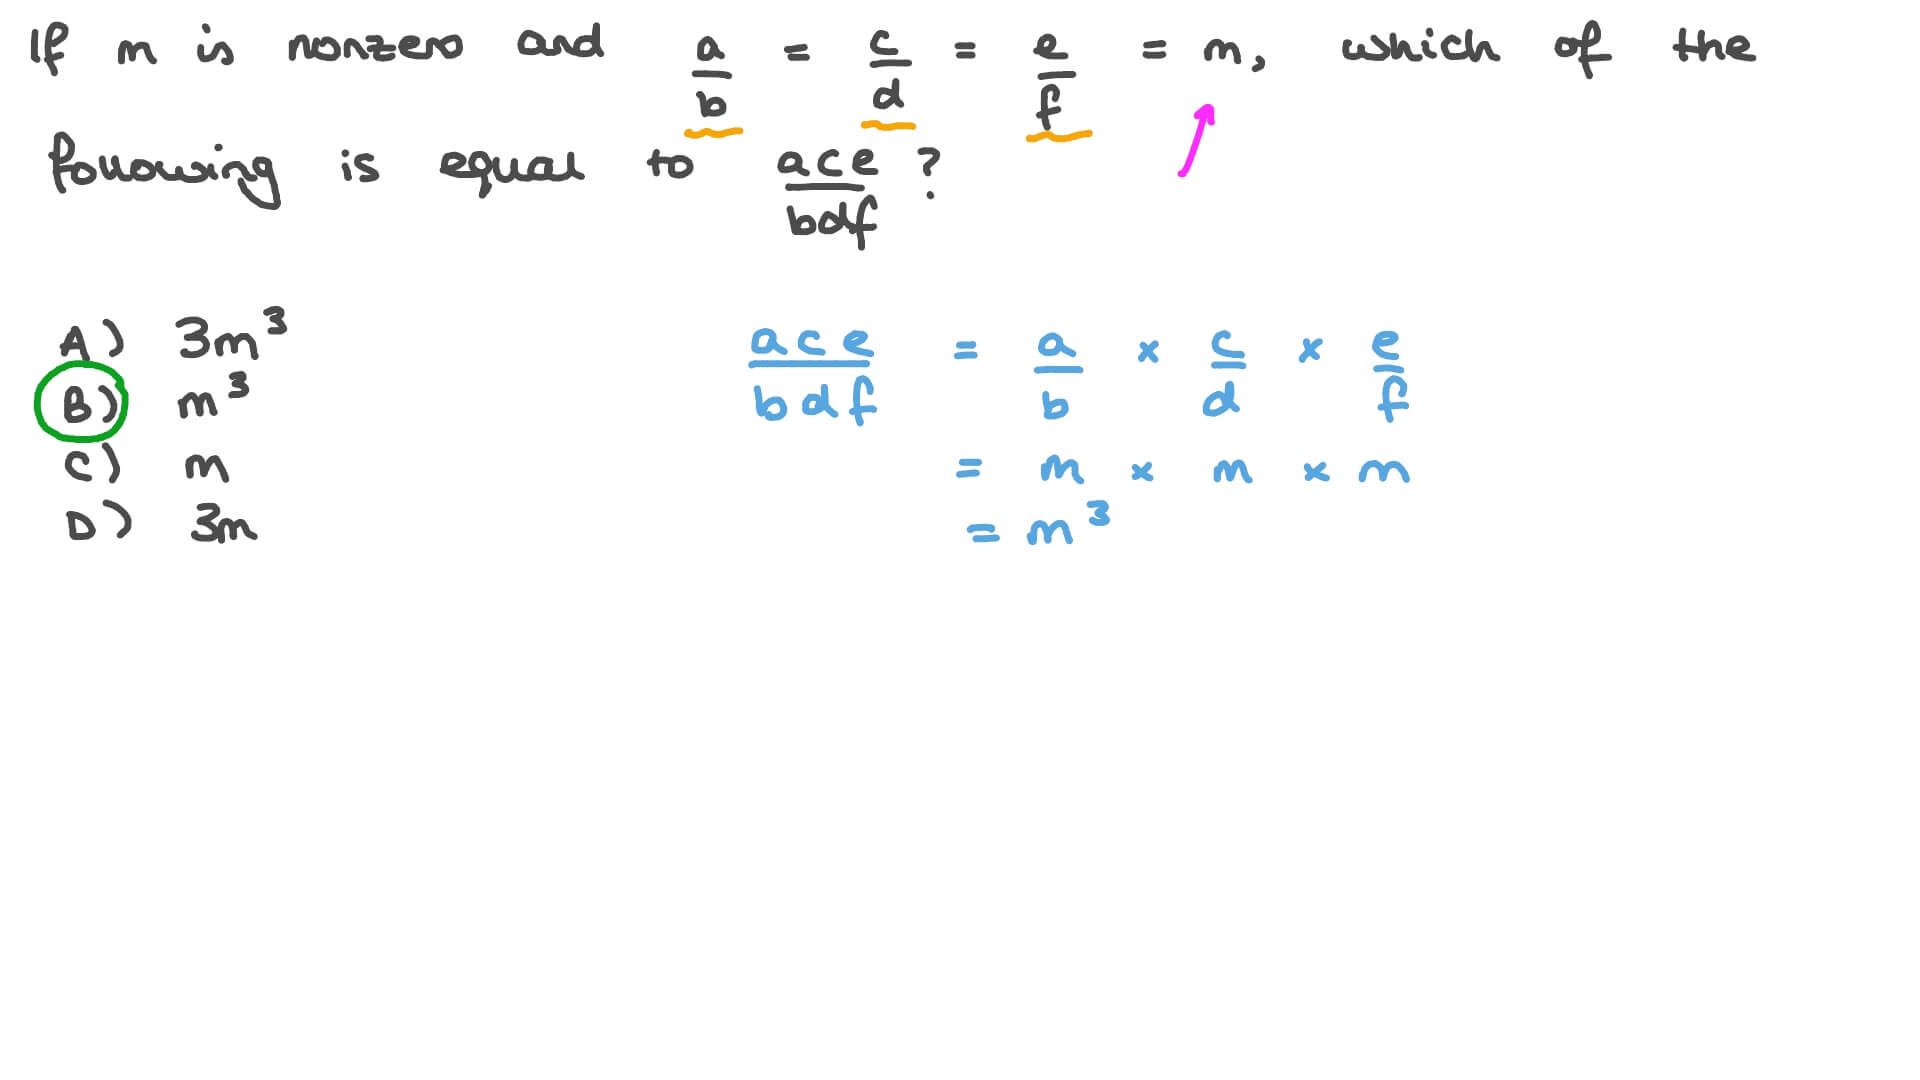 If m is nonzero and a/b = c/d = e/f = m, which of the
following is equal to ace/bdf ?
A) 3m³
B) m³
C) m
D) 3m
ace/bdf = a/b × c/d × e/f
= m × m × m
= m³